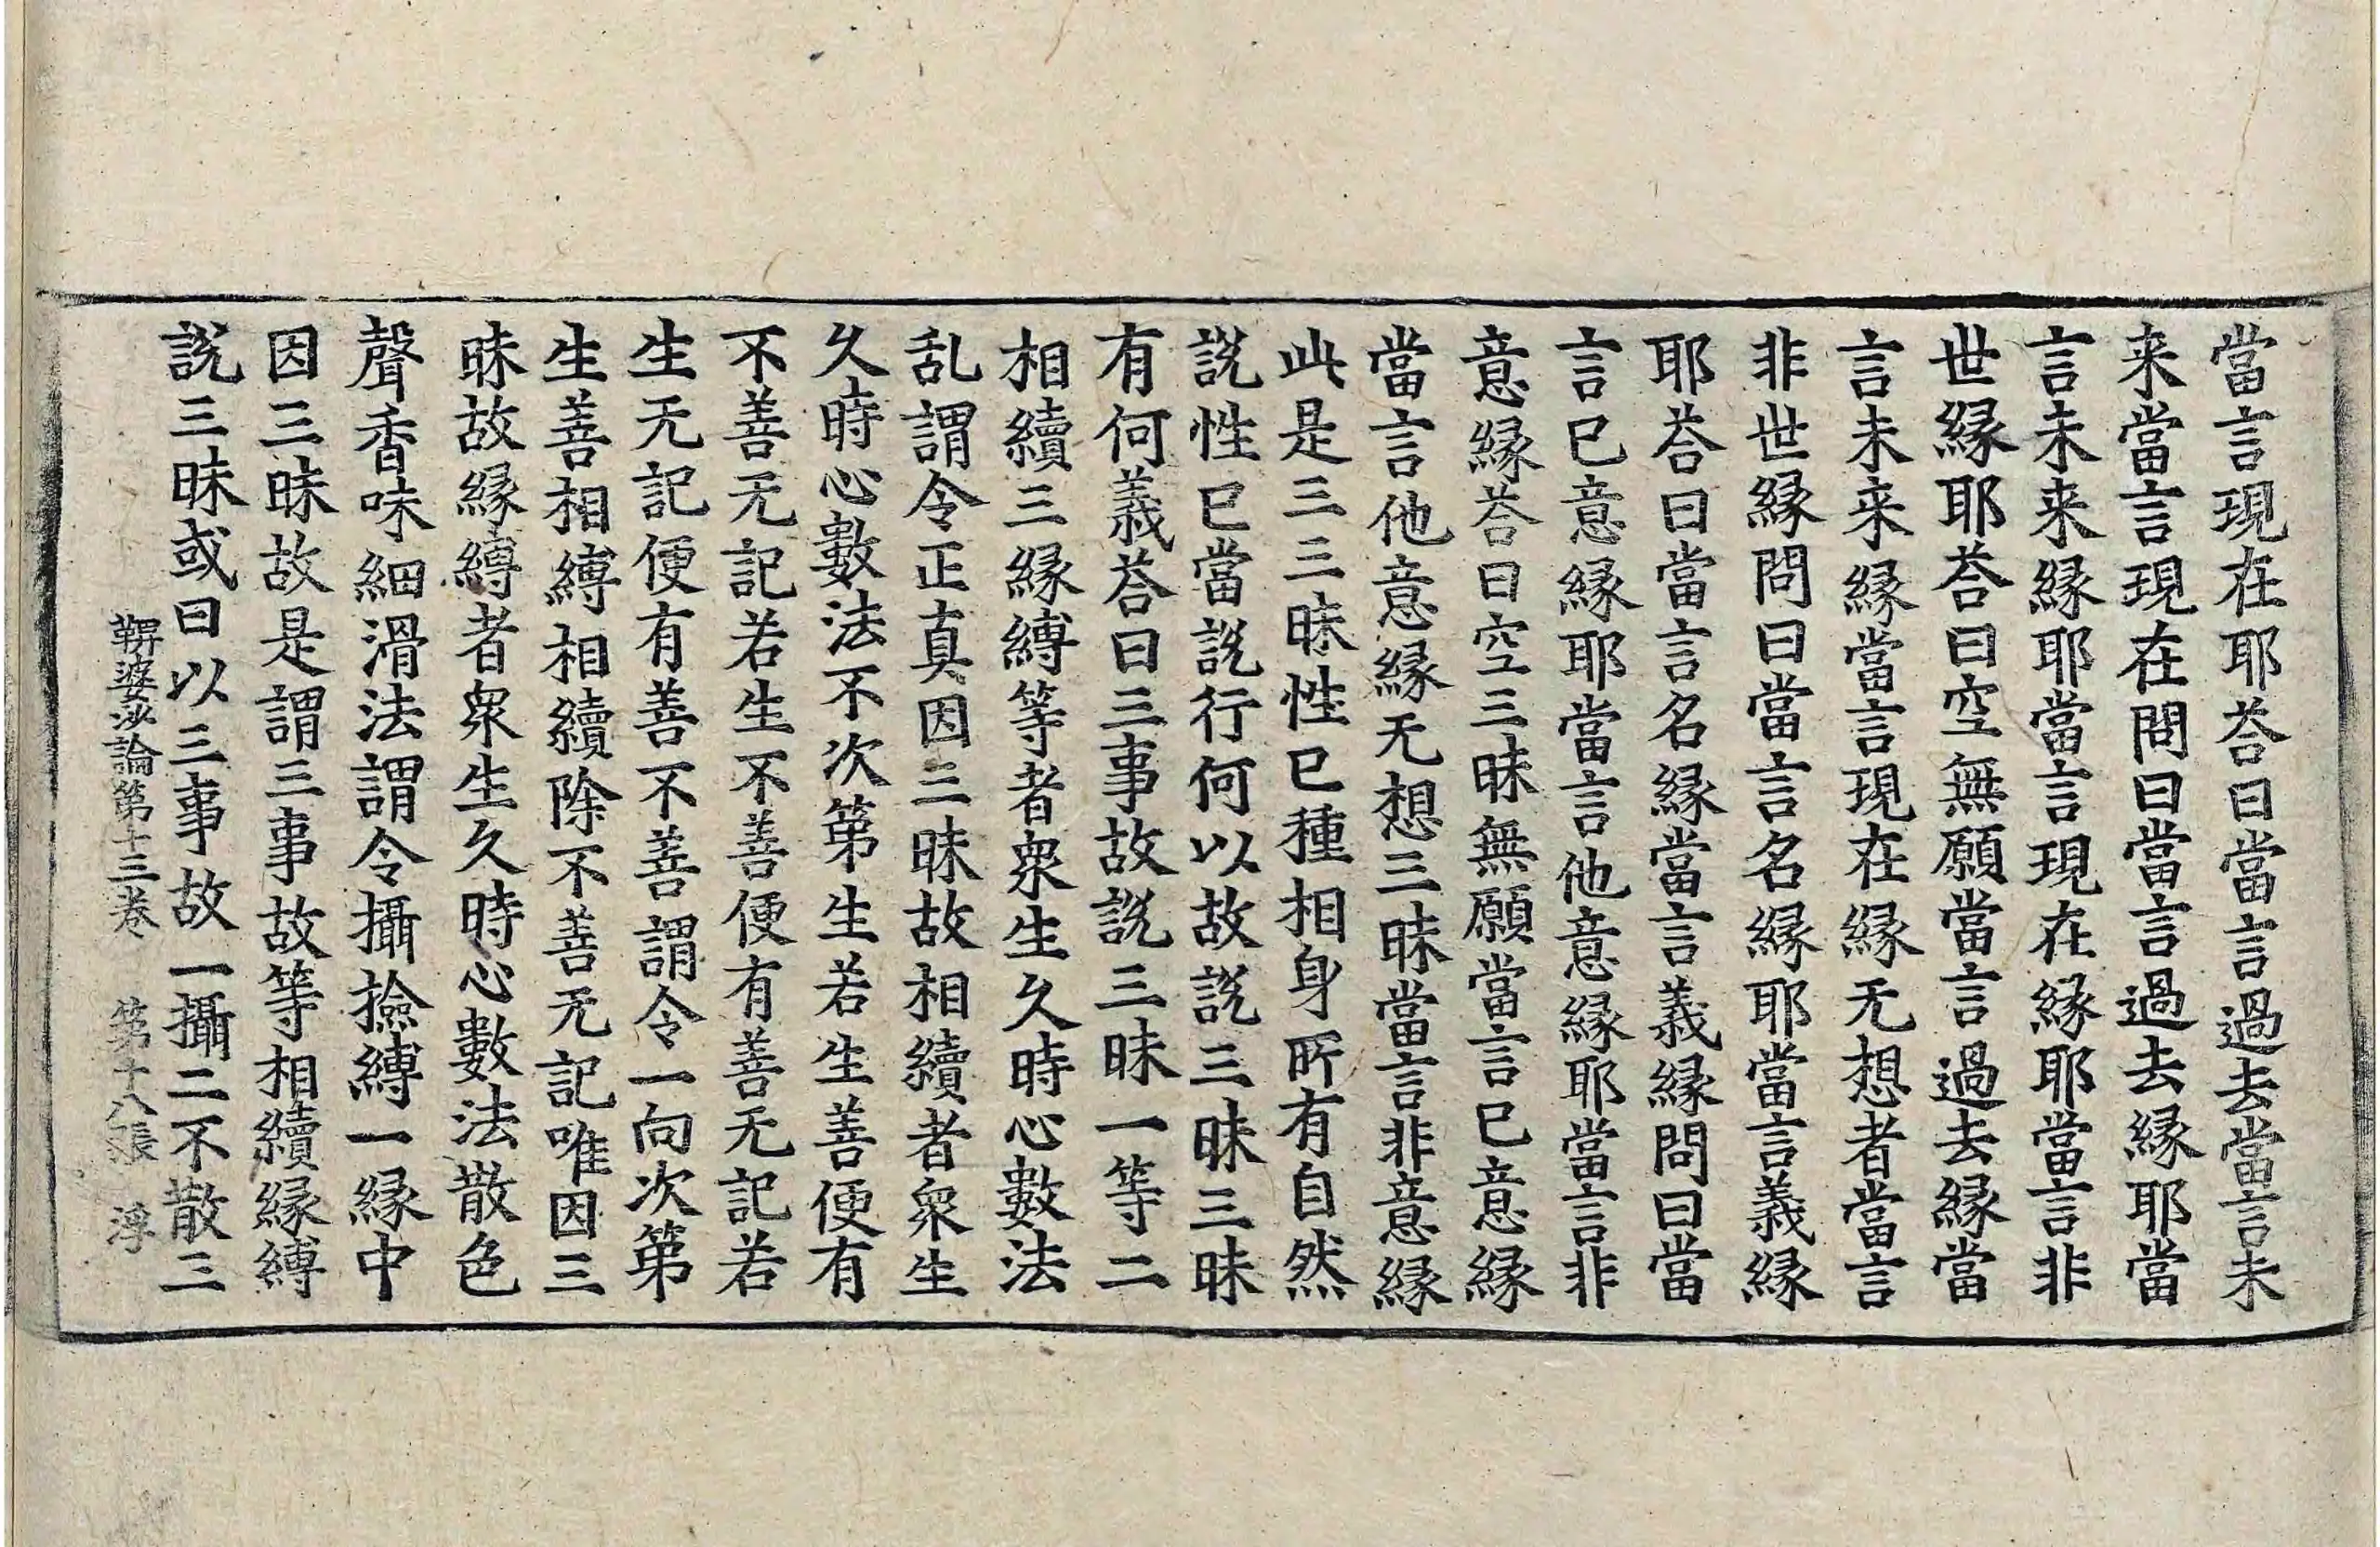 當言現在耶荅曰當言過去當言未
来當言現在問曰當言過去縁耶當
言未来縁耶當言現在縁耶當言非
世縁耶荅曰空無願當言過去縁當
言未来縁當言現在縁无想者當言
非世縁問曰當言名縁耶當言義縁
耶荅曰當言名縁當言義縁問曰當
言巳意縁耶當言他意縁耶當言非
意縁荅曰空三昧無願當言巳意縁
當言他意縁无想三昧當言非意縁
此是三三昧性巳種相身所有自然
説性巳當説行何以故説三昧三昧
有何義荅曰三事故説三昧一等二
相續三縁縛等者衆生久時心數法
乱謂令正真因三昧故相續者衆生
久時心數法不次第生若生善便有
不善无記若生不善便有善无記若
生无記便有善不善謂令一向次第
生善相縛相續除不善无記唯因三
昧故縁縛者衆生久時心數法散色
聲香味細滑法謂令攝撿縛一縁中
因三昧故是謂三事故等相續縁縛
説三昧或曰以三事故一攝二不散三
鞞婆沙論第十三卷 第十八張 浮